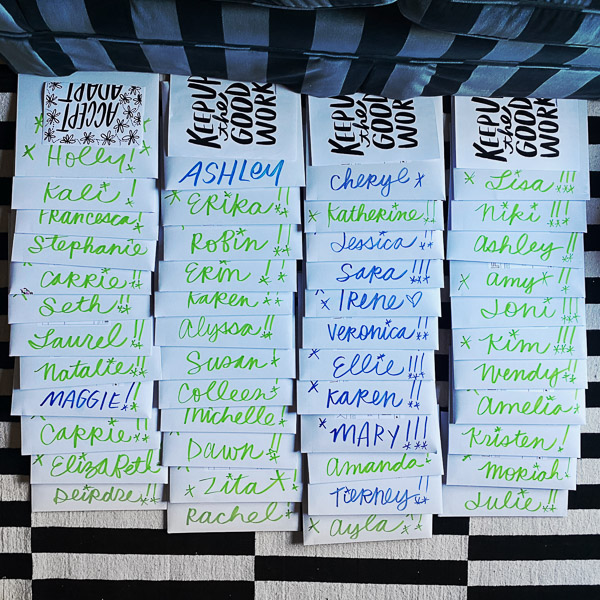 ACCEPT
ADAPT
Holly!
Kali!
Francesca!
Stephanie
Carrie!!
Seth!!
Laurel!!
Natalie!!
MAGGIE!!
Carrie!!
Elizabeth
Deirdre!!
KEEP UP
the
GOOD
WORK
ASHLEY
Erika!!
Robin!!
Erin!!
Karen!!
Alyssa!!
Susan!
Colleen!
Michelle
Dawn!!
Zita
Rachel
KEEP UP
the
GOOD
WORK
Cheryl
Katherine!!
Jessica!!
Sara!!!
Irene♡
Veronica!!
Ellie!!!
Karen!!
MARY!!!
Amanda
Tierney!!
Ayla!!
KEEP UP
the
GOOD
WORK
Lisa!!!
Niki!!
Ashley!!
Amy!!
Joni!!!
Kim!!!
Wendy!!
Amelia
Kristen!
Moriah!
Julie!!